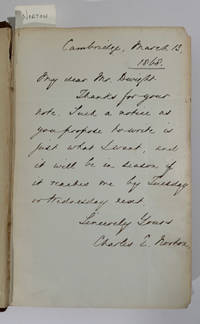 NORTON
Cambridge, March 13
1868.
My dear Mr. Dwight
Thanks for your
note. Such a notice as
you propose to write is
just what I want, and
it will be in season if
it reaches me by Tuesday
or Wednesday next.
Sincerely Yours
Charles E. Norton.